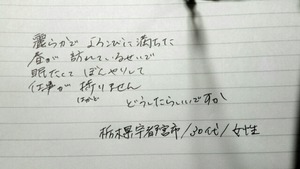 麗らかで よろこびに満ちた
春が 訪れているせいで
眠たくて ぼんやりして
仕事が 捗りません
はかど
どうしたらいいですか
栃木県宇都宮市/30代/女性